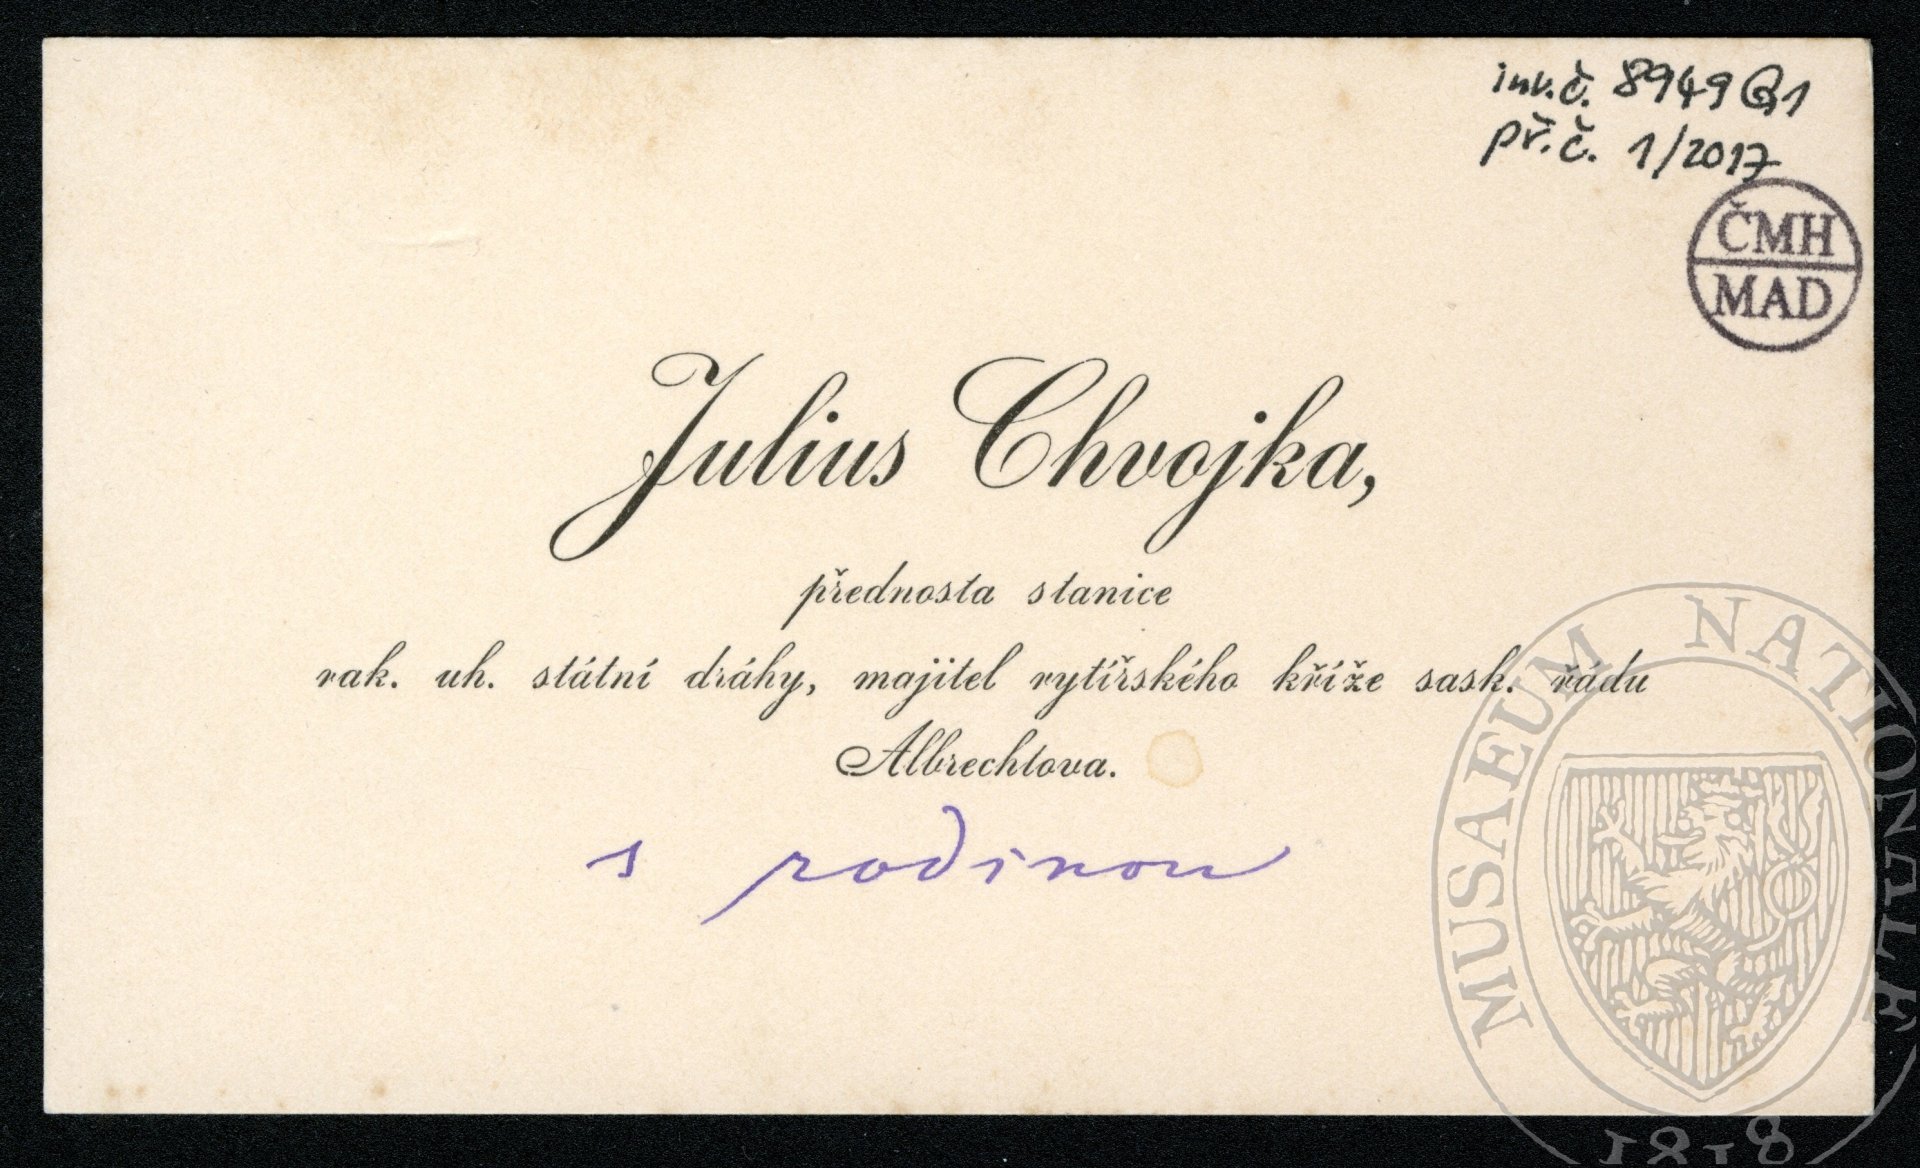 inv.č. 8949 Q1
př.č. 1/2017
ČMH
MAD
Julius Chvojka,
přednosta stanice
rak. uh. státní dráhy, majitel rytířského kříže sask. řádu
Albrechtova.
s rodinou
MUSAEUM NATIONALE
1818